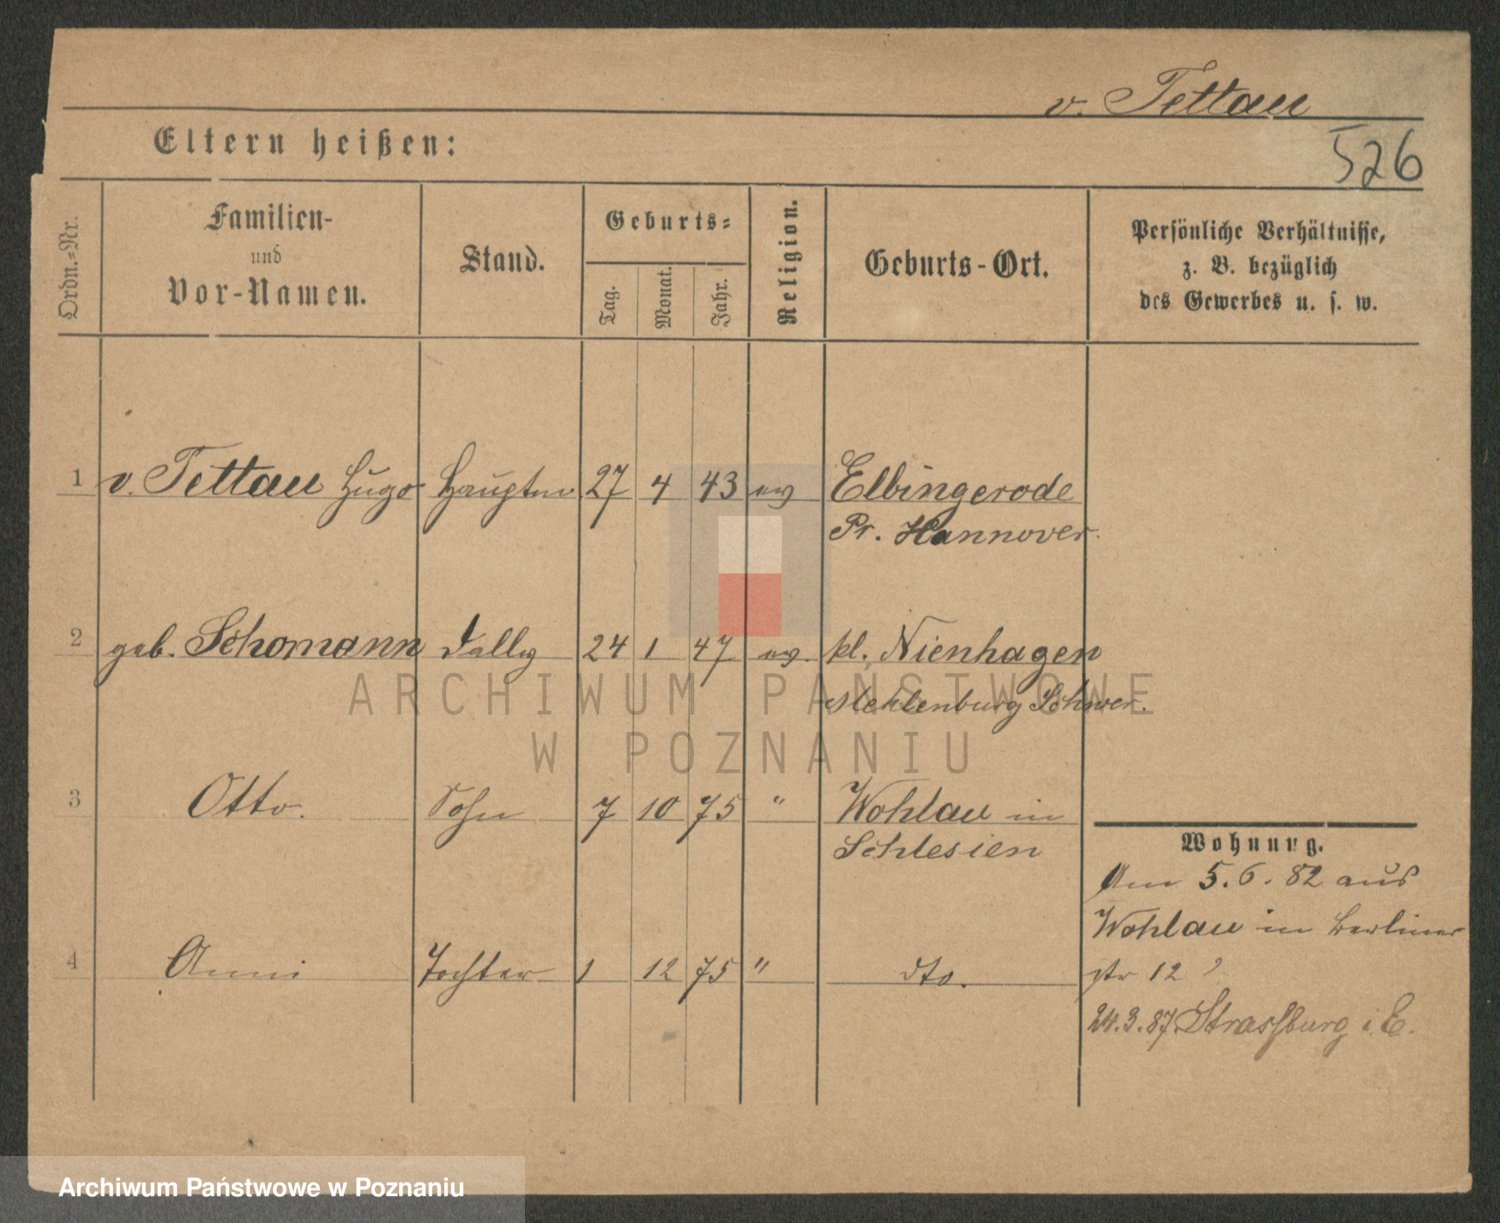 v. Tettau
526
Eltern heißen:
Ordn.-Nr.
Familien-
und
Vor-Namen.
Stand.
Geburts-
Tag.
Monat.
Jahr.
Religion.
Geburts-Ort.
Persönliche Verhältnisse,
z. B. bezüglich
des Gewerbes u. s. w.
1 v. Tettau Hugo Hauptm 27 4 43 ev Elbingerode
Pr. Hannover.
2 geb. Schomann 24 1 47 ev. kl. Nienhagen
Meklenburg Schwer.
3 Otto. Sohn 7 10 75 " Wohlau in
Schlesien
4 Anni Tochter 1 12 75 " dto.
Wohnung.
Am 5.6.82 aus
Wohlau in Berliner
str 12
24.3.87 Strassburg i E.
ARCHIWUM PAŃSTWOWE
W POZNANIU
Archiwum Państwowe w Poznaniu